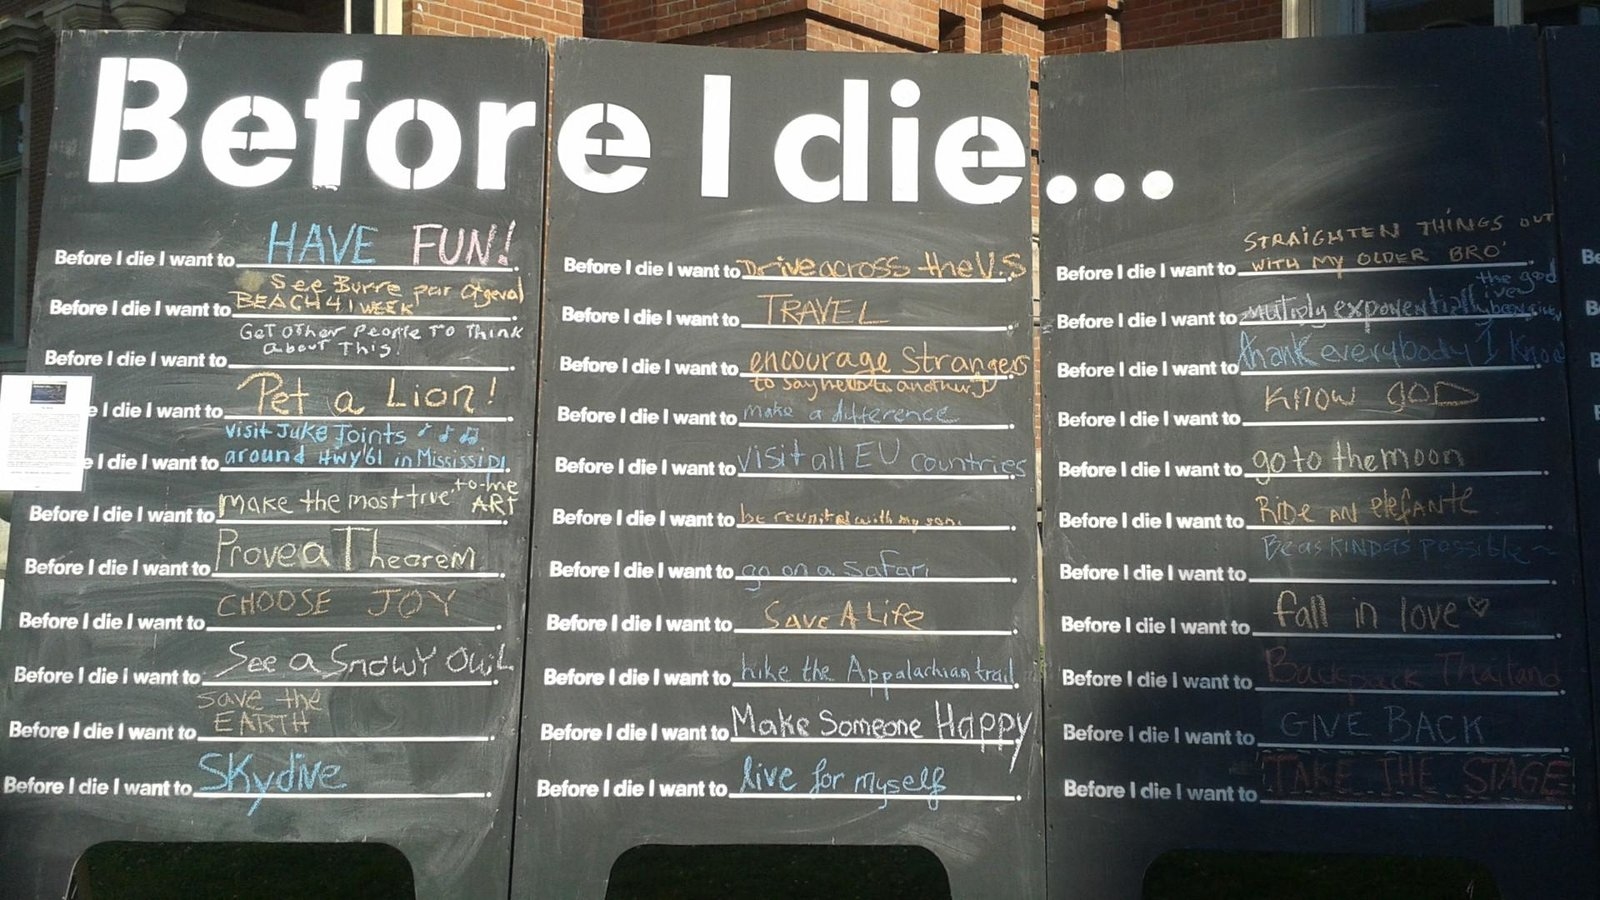 Before I die...
Before I die I want to HAVE FUN!
Before I die I want to See Burre par
BEACH 4 1 WEEK
Before I die I want to Get other People To Think
About This!
e I die I want to Pet a Lion!
visit Juke Joints
e I die I want to around HWY 61 in Mississipi
Before I die I want to make the most true to-me ART
Before I die I want to Prove a Theorem
Before I die I want to CHOOSE JOY
Before I die I want to See a Snowy Owl
Before I die I want to save the
EARTH
Before I die I want to SKydive
Before I die I want to Drive across the U.S
Before I die I want to TRAVEL
Before I die I want to encourage Strangers
to say hello to another
Before I die I want to make a difference
Before I die I want to visit all EU countries
Before I die I want to be reunited with my son.
Before I die I want to go on a safari
Before I die I want to Save A Life
Before I die I want to hike the Appalachian trail
Before I die I want to Make Someone Happy
Before I die I want to live for myself
STRAIGHTEN THINGS OUT
Before I die I want to WITH MY OLDER BRO'
the good
Before I die I want to multiply exponentially
Before I die I want to thank everybody I Know
Before I die I want to KNOW GOD
Before I die I want to go to the moon
Before I die I want to RiDE AN elefANTE
Before I die I want to Be as KIND as possible~
Before I die I want to fall in love ♡
Before I die I want to Backpack Thailand
Before I die I want to GIVE BACK
Before I die I want to TAKE THE STAGE